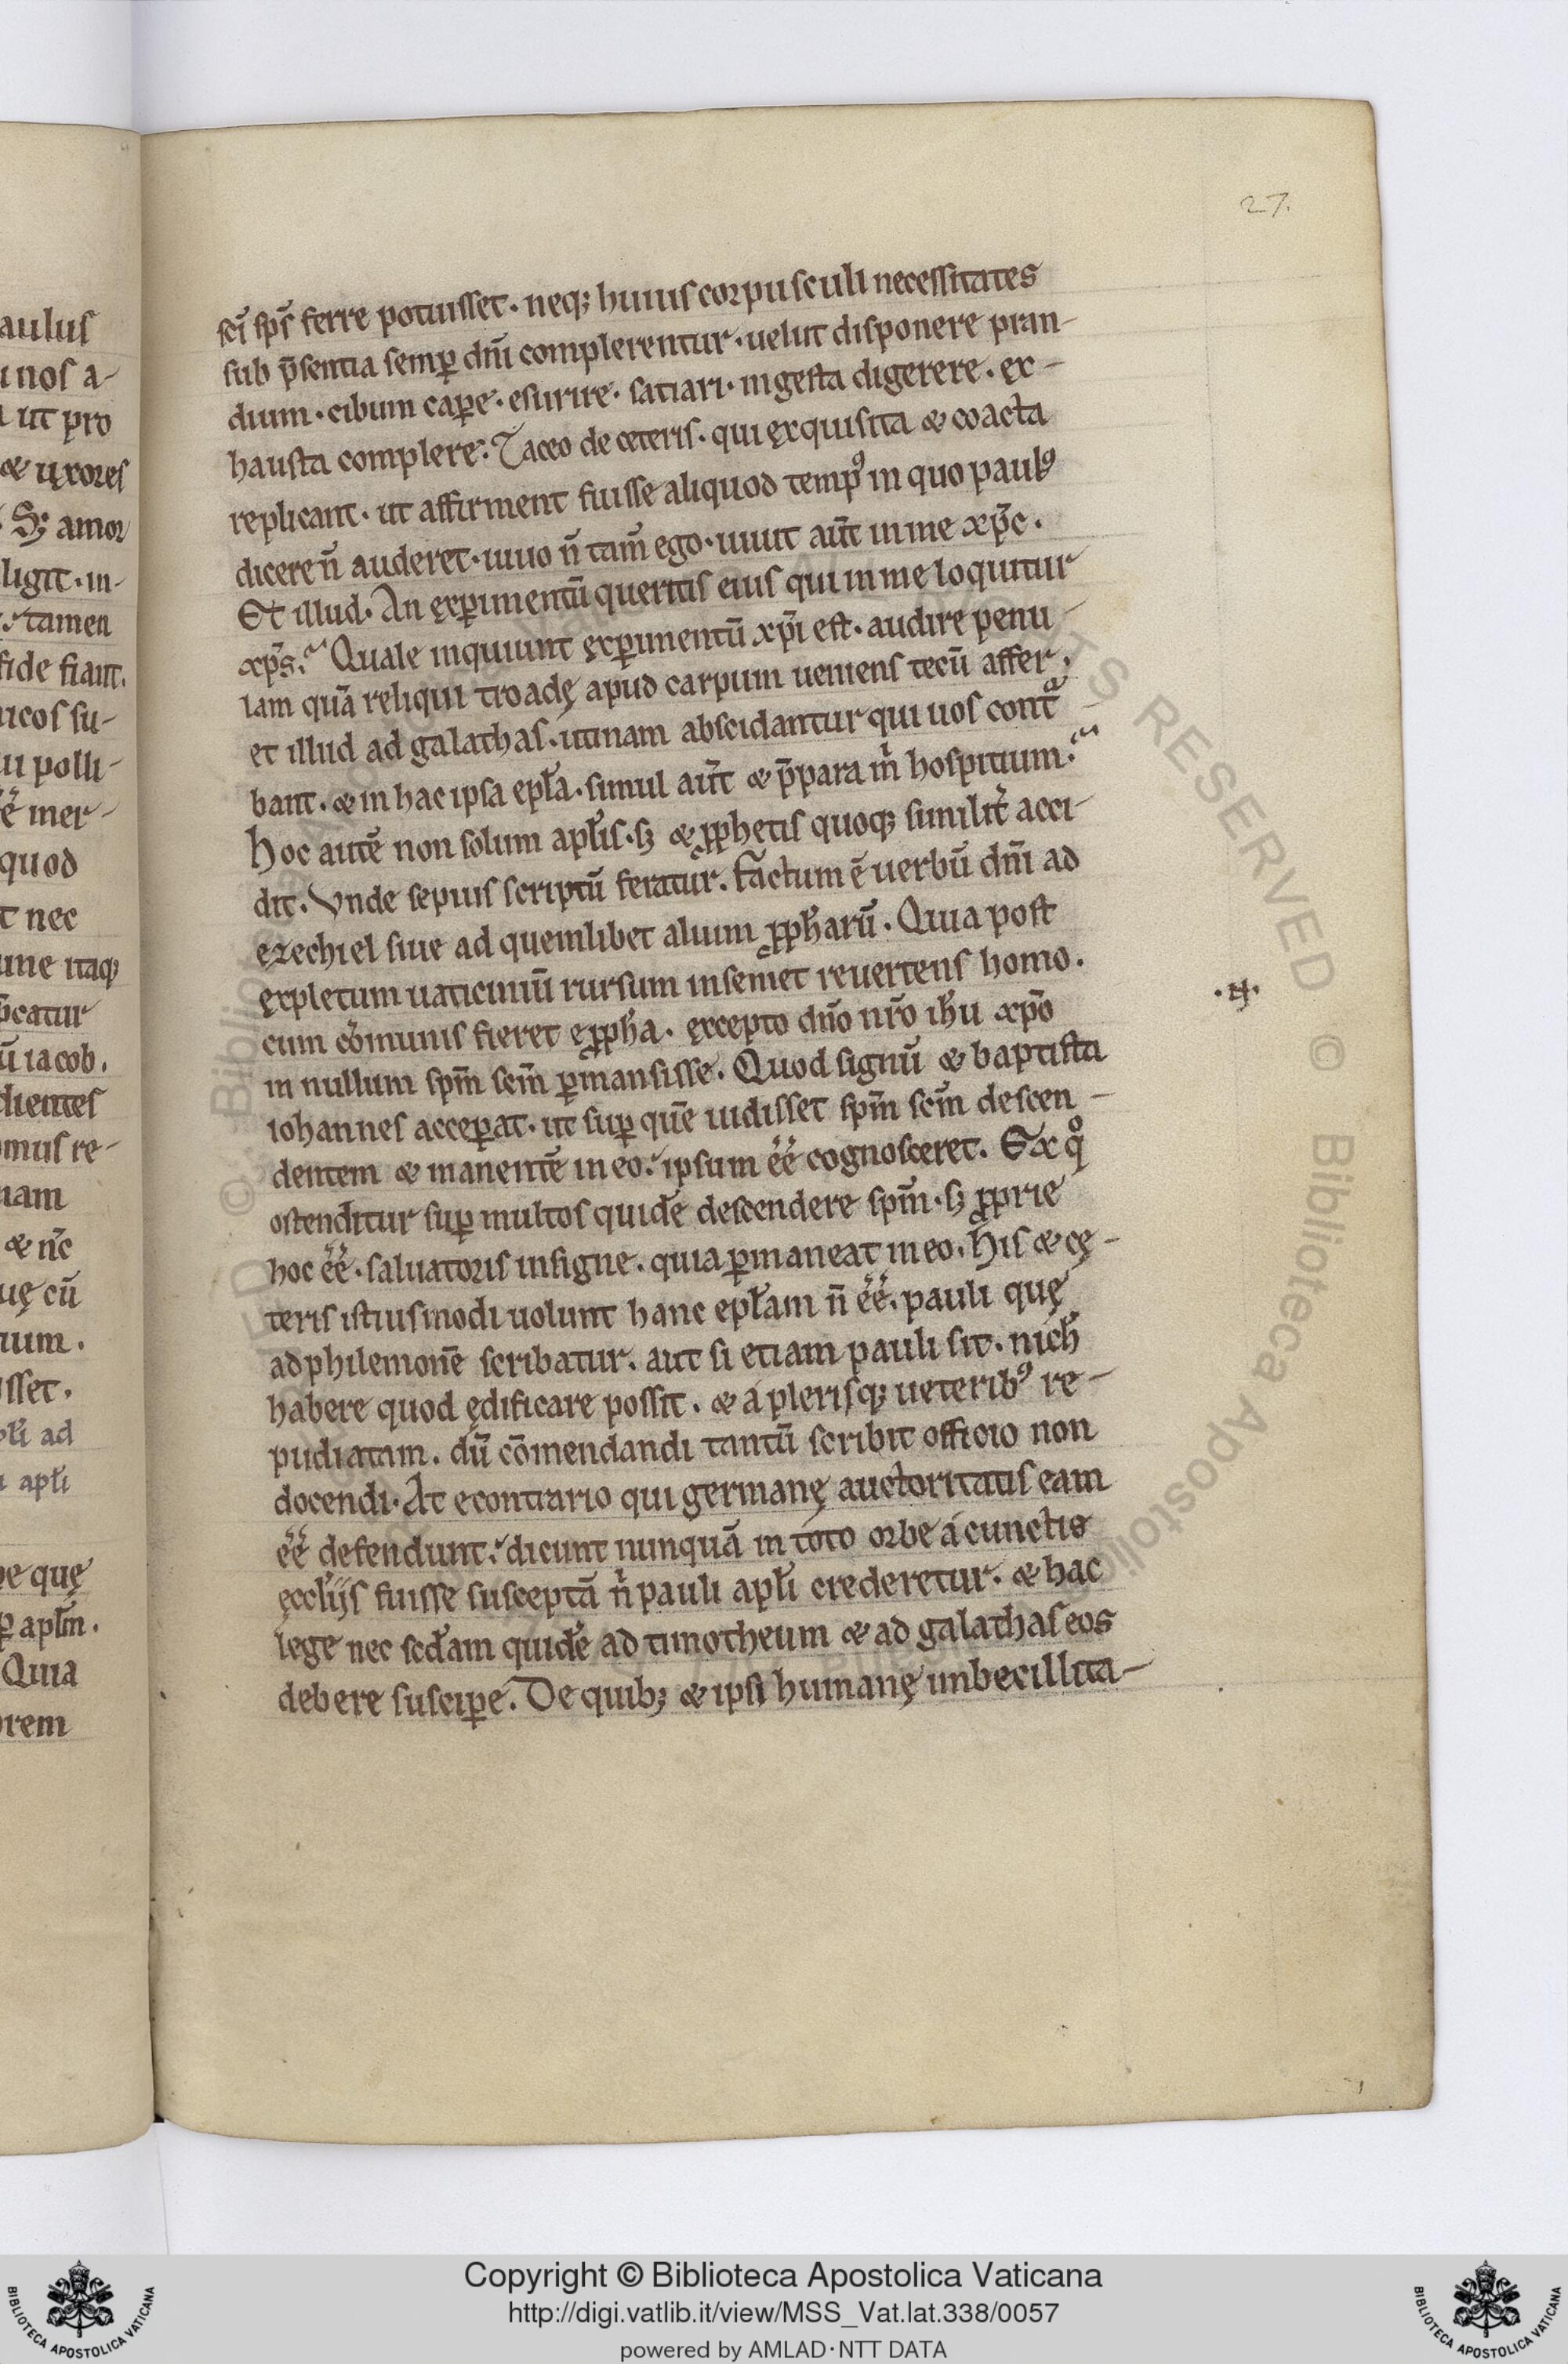 27.
aulus
i nos a-
ut pro
& uxores
S; amor
ligit · in-
tamen
fide fiant.
icos su-
u polli-
ēē mer-
quod
t nec
une itaq;
p̄catur
ū iacob.
dientes
mus re-
uam
& nc̄
uę cū
ium.
sset.
pl̄i ad
i apl̄i
e quę
ꝑ apl̄m.
Quia
orem
sc̄i sp̄s ferre potuisset · neq; huius corpusculi necessitates
sub p̄sentia semꝑ dn̄i complerentur · uelut disponere pran-
dium · cibum caꝑe · esurire · satiari · ingesta digerere · ex-
hausta complere. Taceo de ceteris · qui exquisita & coacta
replicant · ut affirment fuisse aliquod tempꝰ in quo paulꝰ
dicere n̄ auderet · uiuo n̄ tam̄ ego · uiuit aūt in me xp̄c.
Et illud. An exꝑimentū queritis eius qui in me loquitur
xp̄s. Quale inquiunt exꝑimentū xp̄i est · audire penu-
lam quā reliqui troadę apud carpum ueniens tecū affer.
et illud ad galathas · utinam abscidantur qui uos contᵃ
bant · & in hac ipsa epl̄a · simul aūt & p̄para m̄ hospitium.
hoc autē non solum apl̄is · s; & ꝓphetis quoq; similit̄ acci-
dit. Vnde sepius scriptū feratur. Factum ē uerbū dn̄i ad
ezechiel siue ad quemlibet alium ꝓph̄arū. Quia post
expletum uaticiniū rursum in semet reuertens homo.
cum cōmunis fieret eꝓph̄a · excepto dn̄o nr̄o ih̄u xp̄o
in nullum sp̄m sc̄m ꝑmansisse. Quod signū & baptista
iohannes acceꝑat · ut suꝑ quē uidisset sp̄m sc̄m descen-
dentem & manentē in eo. ipsum ēē cognosceret. Ex qº
ostenditur suꝑ multos quidē descendere sp̄m · s; ꝓprie
hoc ēē · saluatoris insigne · quia ꝑmaneat in eo. His & cę-
teris istiusmodi uolunt hanc epl̄am n̄ ēē pauli quę
ad philemonē scribatur. aut si etiam pauli sit · nich̄
habere quod ędificare possit · & a plerisq; ueteribꝰ re-
pudiatam. dū cōmendandi tantū scribit officio non
docendi. At econtrario qui germanę auctoritatis eam
ēē defendunt. dicunt nunquā in toto orbe a cunctis
ęccl̄ijs fuisse susceptā n̄ pauli apl̄i crederetur. & hac
lege nec scd̄am quidē ad timotheum & ad galathas eos
debere susciꝑe. De quib; & ipsi humanę imbecillita-
Copyright © Biblioteca Apostolica Vaticana
http://digi.vatlib.it/view/MSS_Vat.lat.338/0057
powered by AMLAD·NTT DATA
BIBLIOTECA APOSTOLICA VATICANA
BIBLIOTECA APOSTOLICA VATICANA